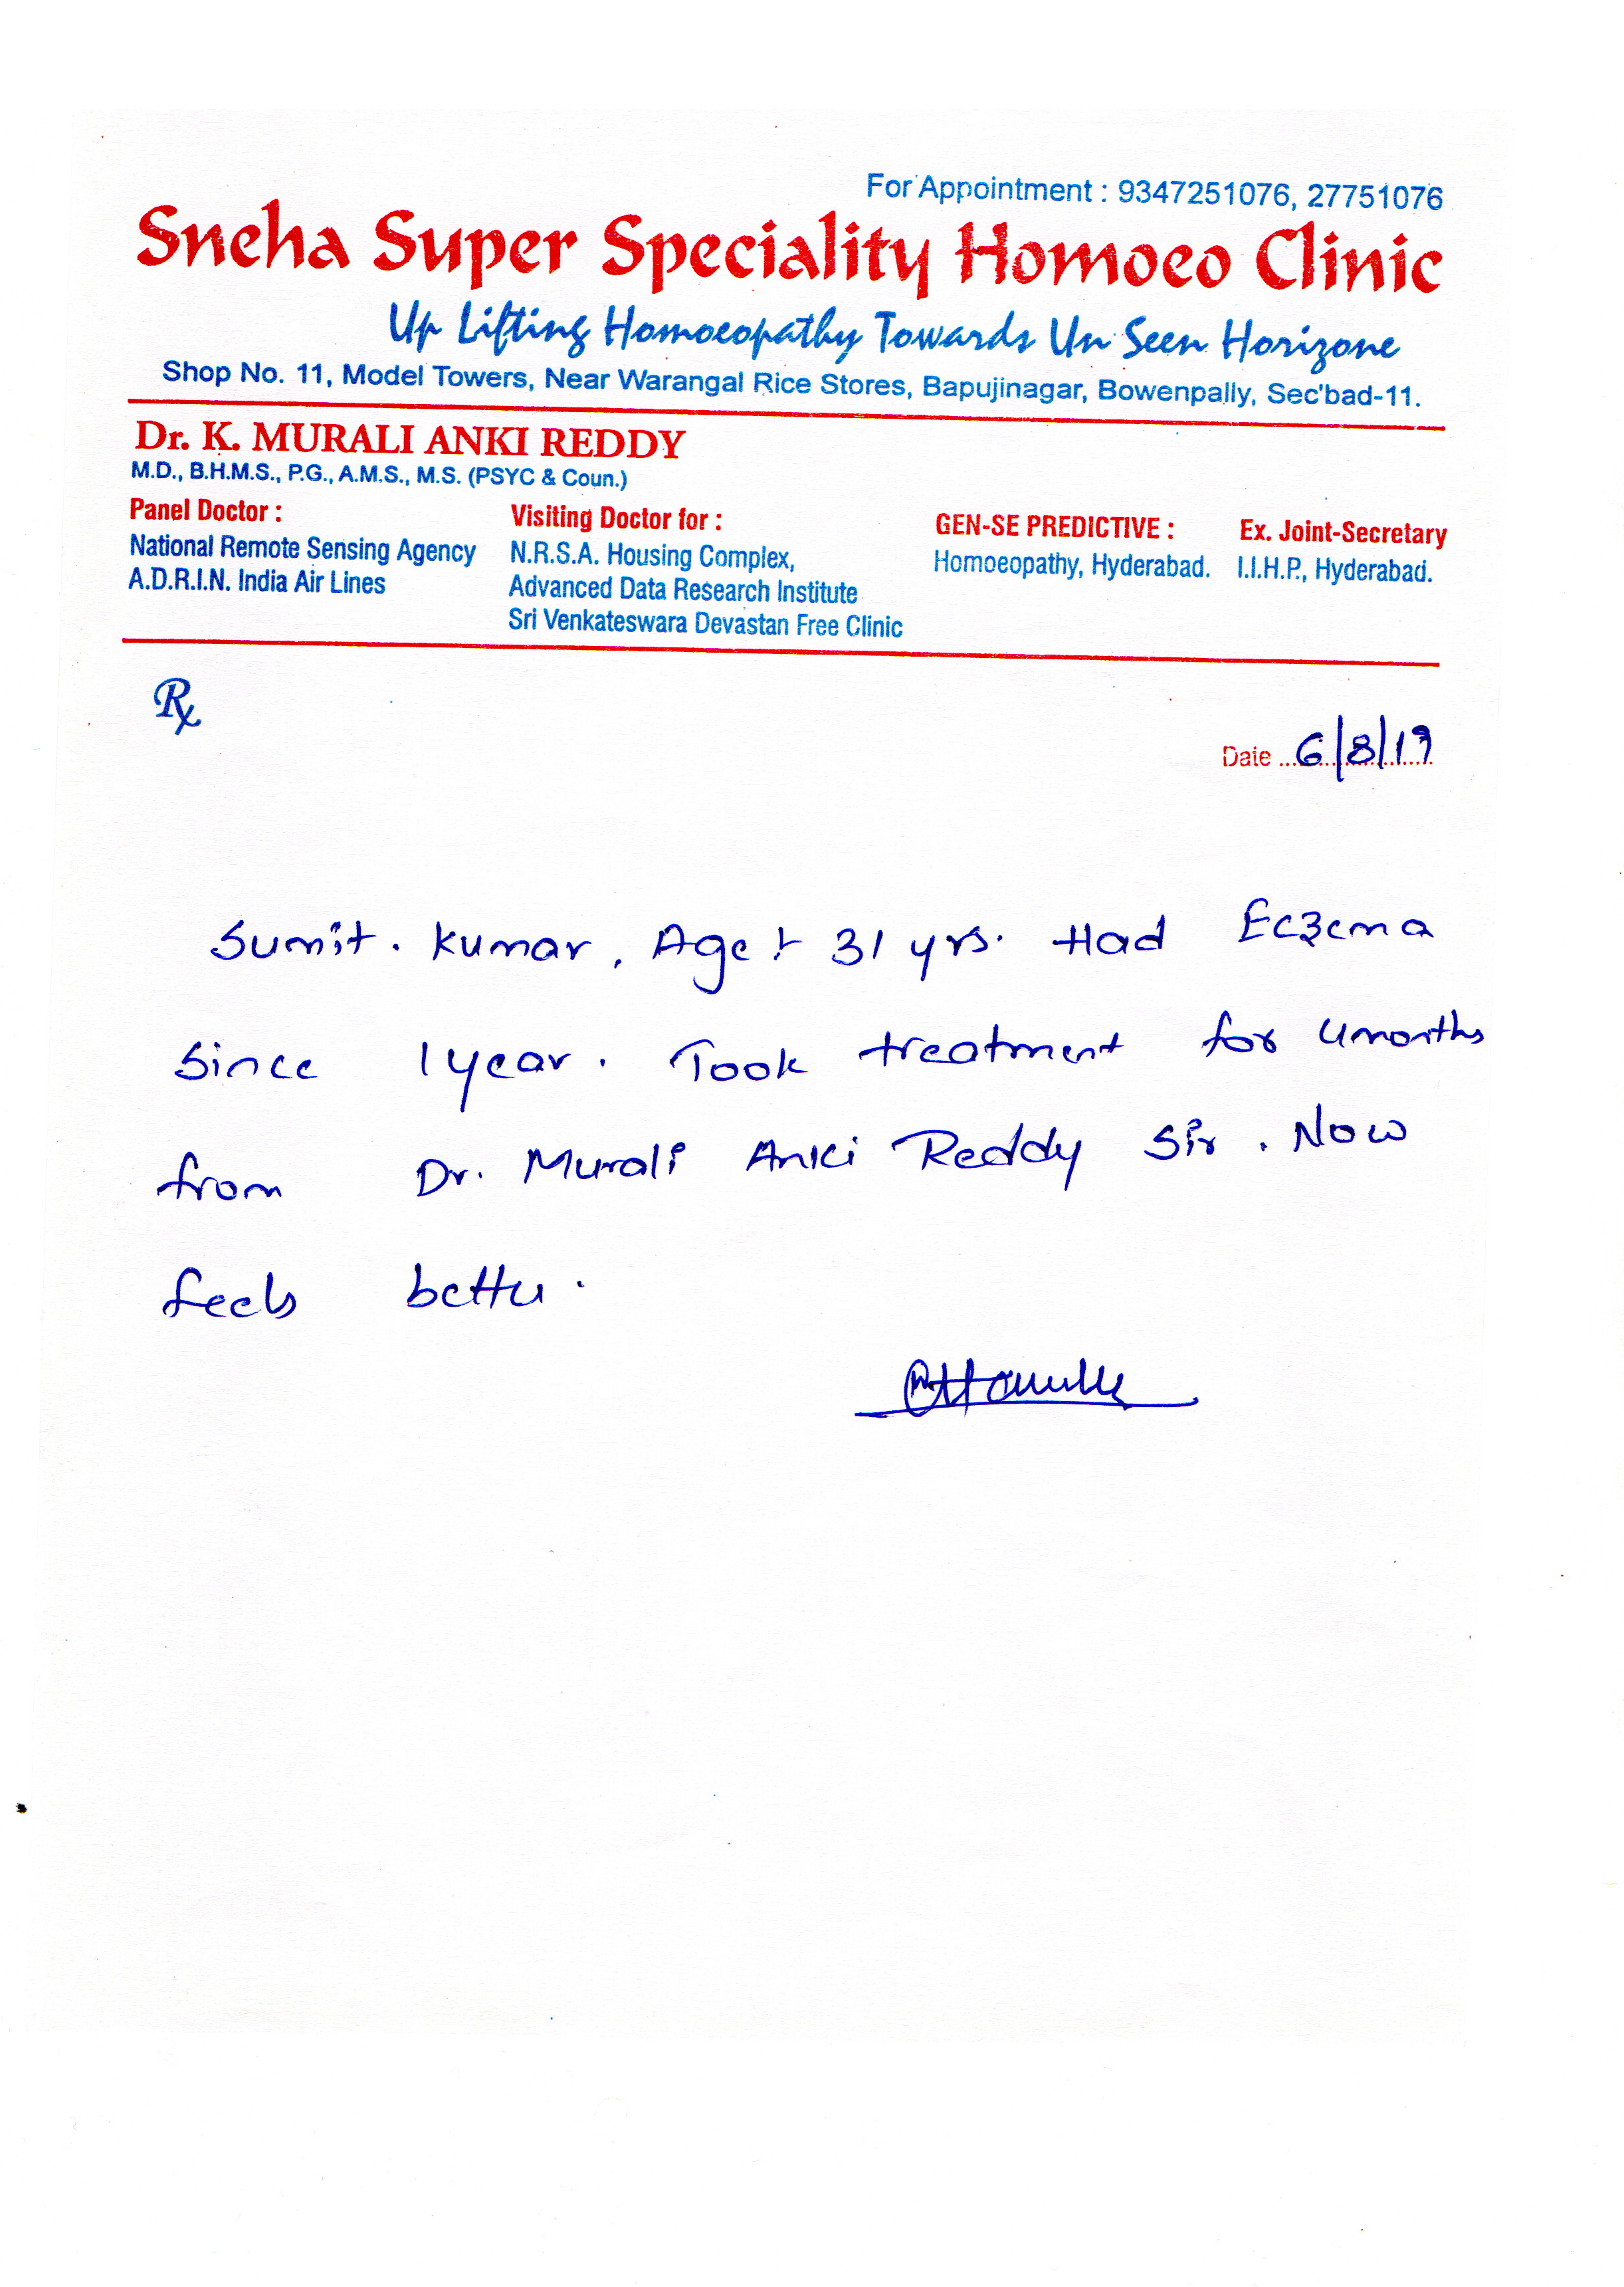 For Appointment : 9347251076, 27751076
Sneha Super Speciality Homoeo Clinic
Up Lifting Homoeopathy Towards Un Seen Horizone
Shop No. 11, Model Towers, Near Warangal Rice Stores, Bapujinagar, Bowenpally, Sec'bad-11.
Dr. K. MURALI ANKI REDDY
M.D., B.H.M.S., P.G., A.M.S., M.S. (PSYC & Coun.)
Panel Doctor :
National Remote Sensing Agency
A.D.R.I.N. India Air Lines
Visiting Doctor for :
N.R.S.A. Housing Complex,
Advanced Data Research Institute
Sri Venkateswara Devastan Free Clinic
GEN-SE PREDICTIVE :
Homoeopathy, Hyderabad.
Ex. Joint-Secretary
I.I.H.P., Hyderabad.
Rx
Date 6/8/19
Sumit. Kumar, Age : 31 yrs. Had Eczema
since 1year. Took treatment for 4months
from Dr. Murali Anki Reddy Sir. Now
feels better.